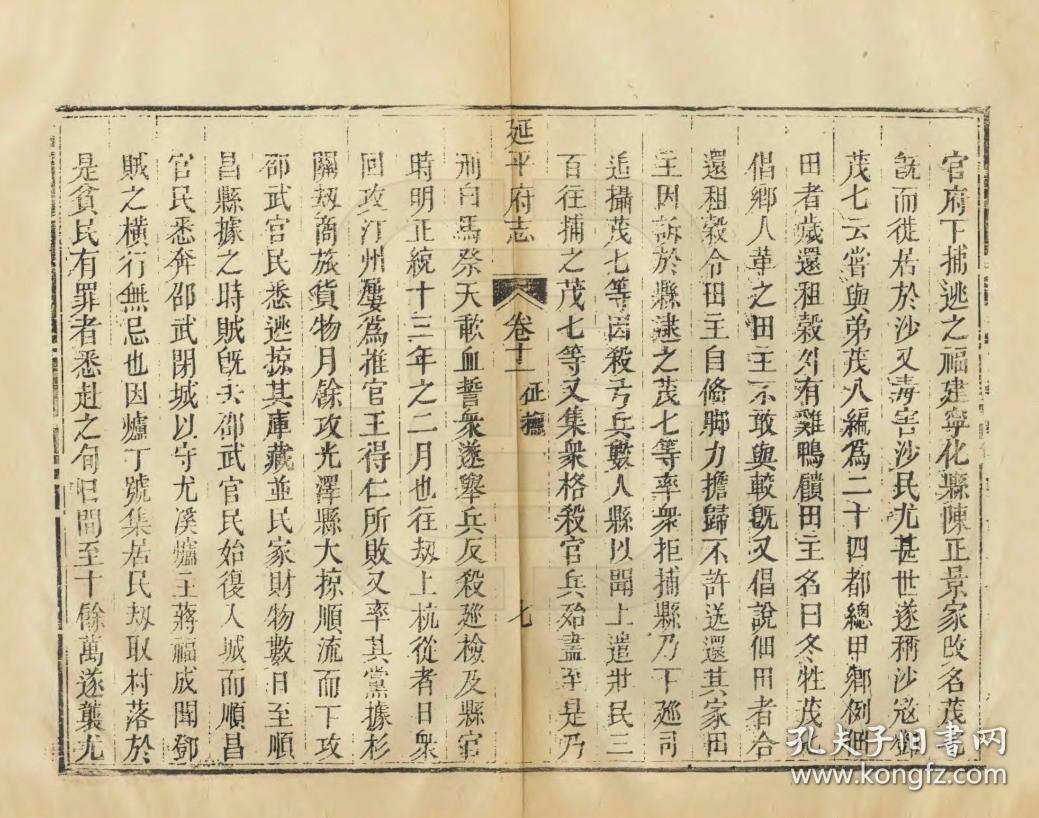 官府下捕逃之福建寧化縣陳正景家改名茂七
旣而徙居於沙又毒害沙民尤甚世遂稱沙寇鄧
茂七云嘗與弟茂八編爲二十四都總甲鄉例佃
田者歲還租穀外有雞鴨饋田主名曰冬牲茂七
倡鄉人革之田主不敢與較旣又倡說佃田者合
還租穀令田主自俻脚力擔歸不許送還其家田
主因訴於縣逮之茂七等率衆拒捕縣乃下廵司
追攝茂七等因殺弓兵數人縣以聞上遣壯民三
百往捕之茂七等又集衆格殺官兵殆盡至是乃
延平府志
卷十二
征撫
七
刑白馬祭天歃血誓衆遂舉兵反殺廵檢及縣官
時明正統十三年之二月也往刼上杭從者日衆
回攻汀州屢爲推官王得仁所敗又率其黨據杉
關刼商旅貨物月餘攻光澤縣大掠順流而下攻
邵武官民悉逃掠其庫藏並民家財物數日至順
昌縣據之時賊旣去邵武官民始復入城而順昌
官民悉奔邵武閉城以守尤溪爐主蔣福成聞鄧
賊之橫行無忌也因爐丁號集居民刼取村落於
是貧民有罪者悉赴之旬日間至十餘萬遂襲尤
孔夫子旧书网
www.kongfz.com